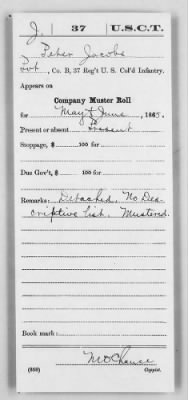 J. 37 U.S.C.T.
Peter Jacobs
Pvt, Co. B, 37 Reg't U. S. Col'd Infantry.
Appears on
Company Muster Roll
for May & June, 1865.
Present or absent Present
Stoppage, $ 100 for
Due Gov't, $ 100 for
Remarks: Detached. No Des-
criptive list. Mustered.
Book mark:
(359) Copyist.